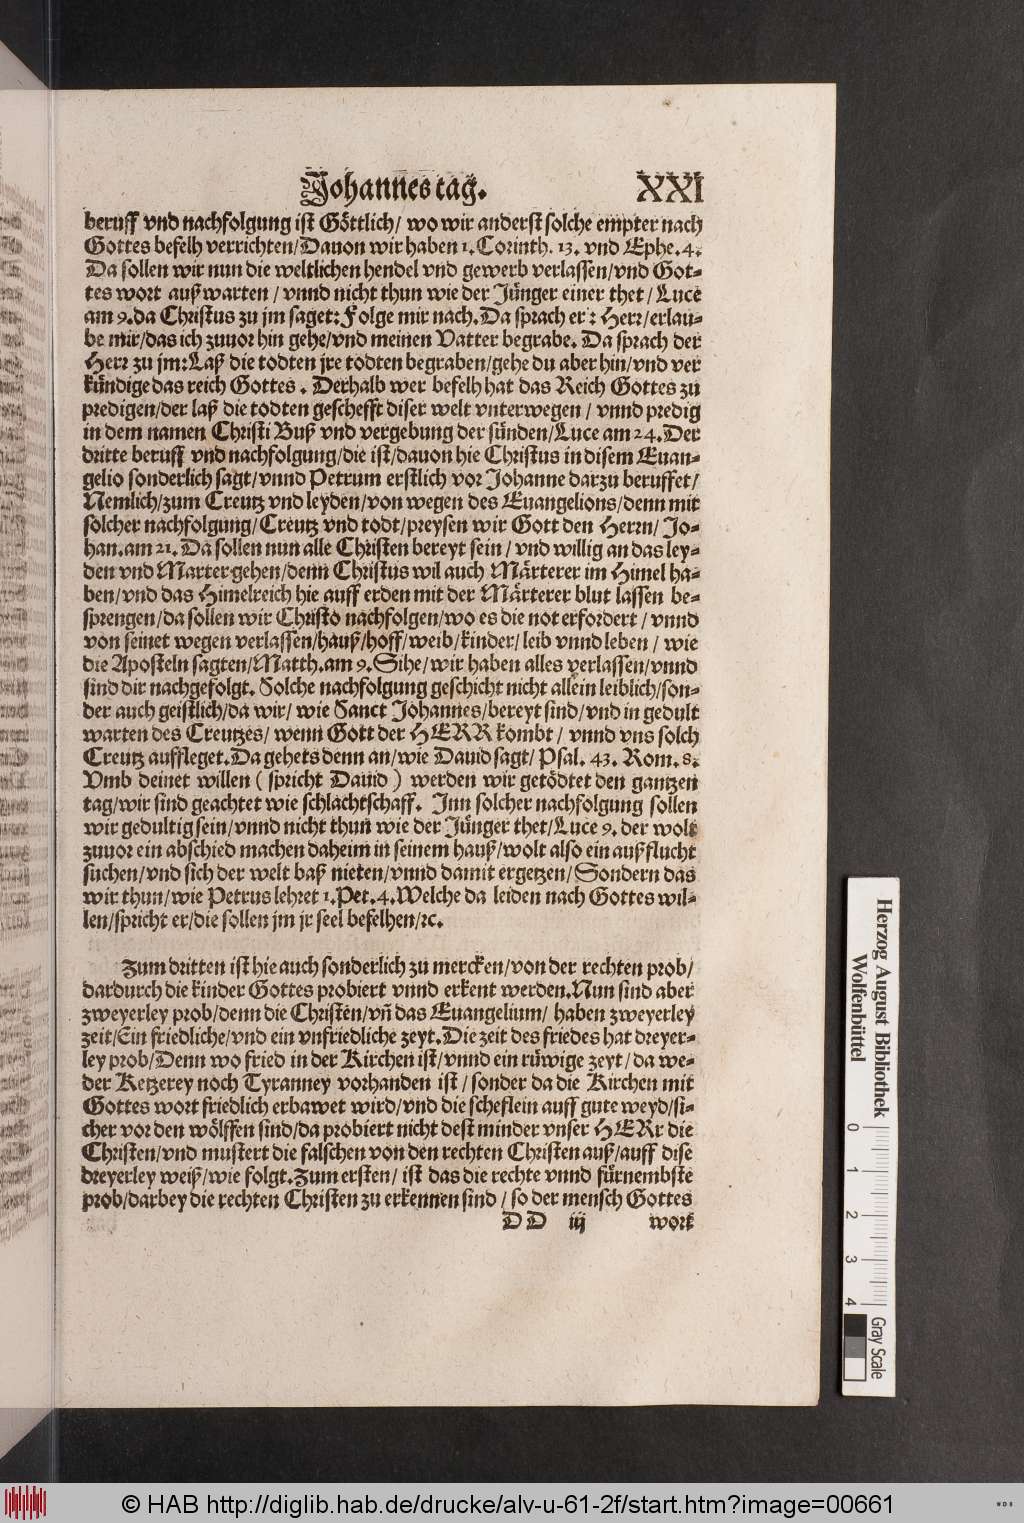 Johannes tag. XXI
beruff vnd nachfolgung ist Göttlich/ wo wir anderst solche empter nach
Gottes befelh verrichten/Dauon wir haben 1. Corinth. 13. vnd Ephe. 4.
Da sollen wir nun die weltlichen hendel vnd gewerb verlassen/vnd Got-
tes wort außwarten / vnnd nicht thun wie der Jünger einer thet / Luce
am 9.da Christus zu jm saget: Folge mir nach. Da sprach er: Herr/erlau-
be mir/das ich zuuor hin gehe/vnd meinen Vatter begrabe. Da sprach der
Herr zu jm: Laß die todten jre todten begraben/gehe du aber hin/vnd ver
kündige das reich Gottes . Derhalb wer befelh hat das Reich Gottes zu
predigen/der laß die todten geschefft diser welt vnterwegen / vnnd predig
in dem namen Christi Buß vnd vergebung der sünden/Luce am 24. Der
dritte beruff vnd nachfolgung/die ist/dauon hie Christus in disem Euan-
gelio sonderlich sagt/vnnd Petrum erstlich vor Johanne darzu beruffet/
Nemlich/zum Creutz vnd leyden/von wegen des Euangelions/denn mit
solcher nachfolgung/Creutz vnd todt/preysen wir Gott den Herrn/ Jo-
han.am 21. Da sollen nun alle Christen bereyt sein / vnd willig an das ley-
den vnd Marter gehen/denn Christus wil auch Märterer im Himel ha-
ben/vnd das Himelreich hie auff erden mit der Märterer blut lassen be-
sprengen/da sollen wir Christo nachfolgen/wo es die not erfordert / vnnd
von seinet wegen verlassen/hauß/hoff/weib/kinder/leib vnnd leben / wie
die Aposteln sagten/Matth.am 9. Sihe/wir haben alles verlassen/vnnd
sind dir nachgefolgt. Solche nachfolgung geschicht nicht allein leiblich/son-
der auch geistlich/da wir/ wie Sanct Johannes/bereyt sind/vnd in gedult
warten des Creutzes/ wenn Gott der HERR kombt / vnnd vns solch
Creutz auffleget. Da gehets denn an/wie Dauid sagt/ Psal. 43. Rom. 8.
Vmb deinet willen ( spricht Dauid ) werden wir getödtet den gantzen
tag/wir sind geachtet wie schlachtschaff. Inn solcher nachfolgung sollen
wir gedultig sein/vnnd nicht thun wie der Jünger thet/Luce 9. der wolt
zuuor ein abschied machen daheim in seinem hauß/wolt also ein außflucht
suchen/vnd sich der welt baß nieten/vnnd damit ergetzen/Sondern das
wir thun/wie Petrus lehret 1. Pet. 4. Welche da leiden nach Gottes wil-
len/spricht er/die sollen jm jr seel befelhen/ꝛc.
Zum dritten ist hie auch sonderlich zu mercken/von der rechten prob/
dardurch die kinder Gottes probiert vnnd erkent werden. Nun sind aber
zweyerley prob/denn die Christen/vñ das Euangelium/ haben zweyerley
zeit/Ein friedliche/vnd ein vnfriedliche zeyt. Die zeit des friedes hat dreyer-
ley prob/Denn wo fried in der Kirchen ist/vnnd ein rüwige zeyt / da we-
der Ketzerey noch Tyranney vorhanden ist / sonder da die Kirchen mit
Gottes wort friedlich erbawet wird/vnd die scheflein auff gute weyd/si-
cher vor den wölffen sind/da probiert nicht dest minder vnser HERr die
Christen/vnd mustert die falschen von den rechten Christen auß/auff dise
dreyerley weiß/wie folgt. Zum ersten / ist das die rechte vnnd fürnembste
prob/darbey die rechten Christen zu erkennen sind / so der mensch Gottes
DD iij wort
Herzog August Bibliothek
Wolfenbüttel
0 1 2 3 4
Gray Scale
© HAB http://diglib.hab.de/drucke/alv-u-61-2f/start.htm?image=00661